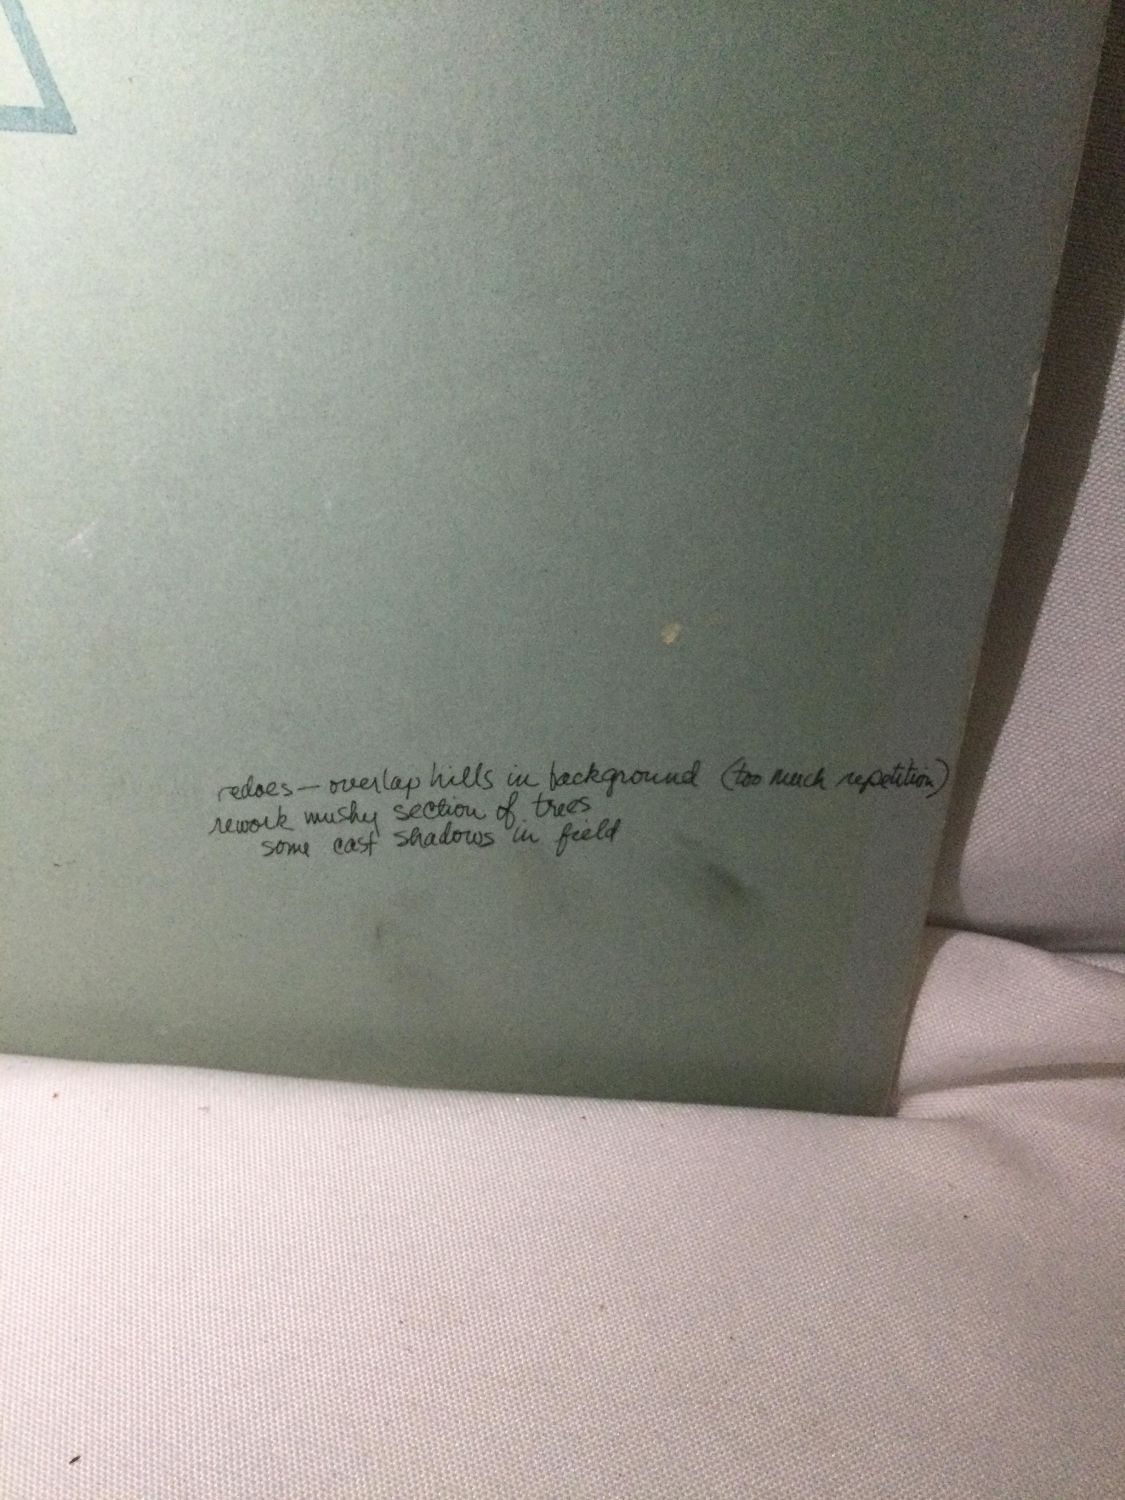 redoes — overlap hills in background (too much repetition)
rework mushy section of trees
some cast shadows in field